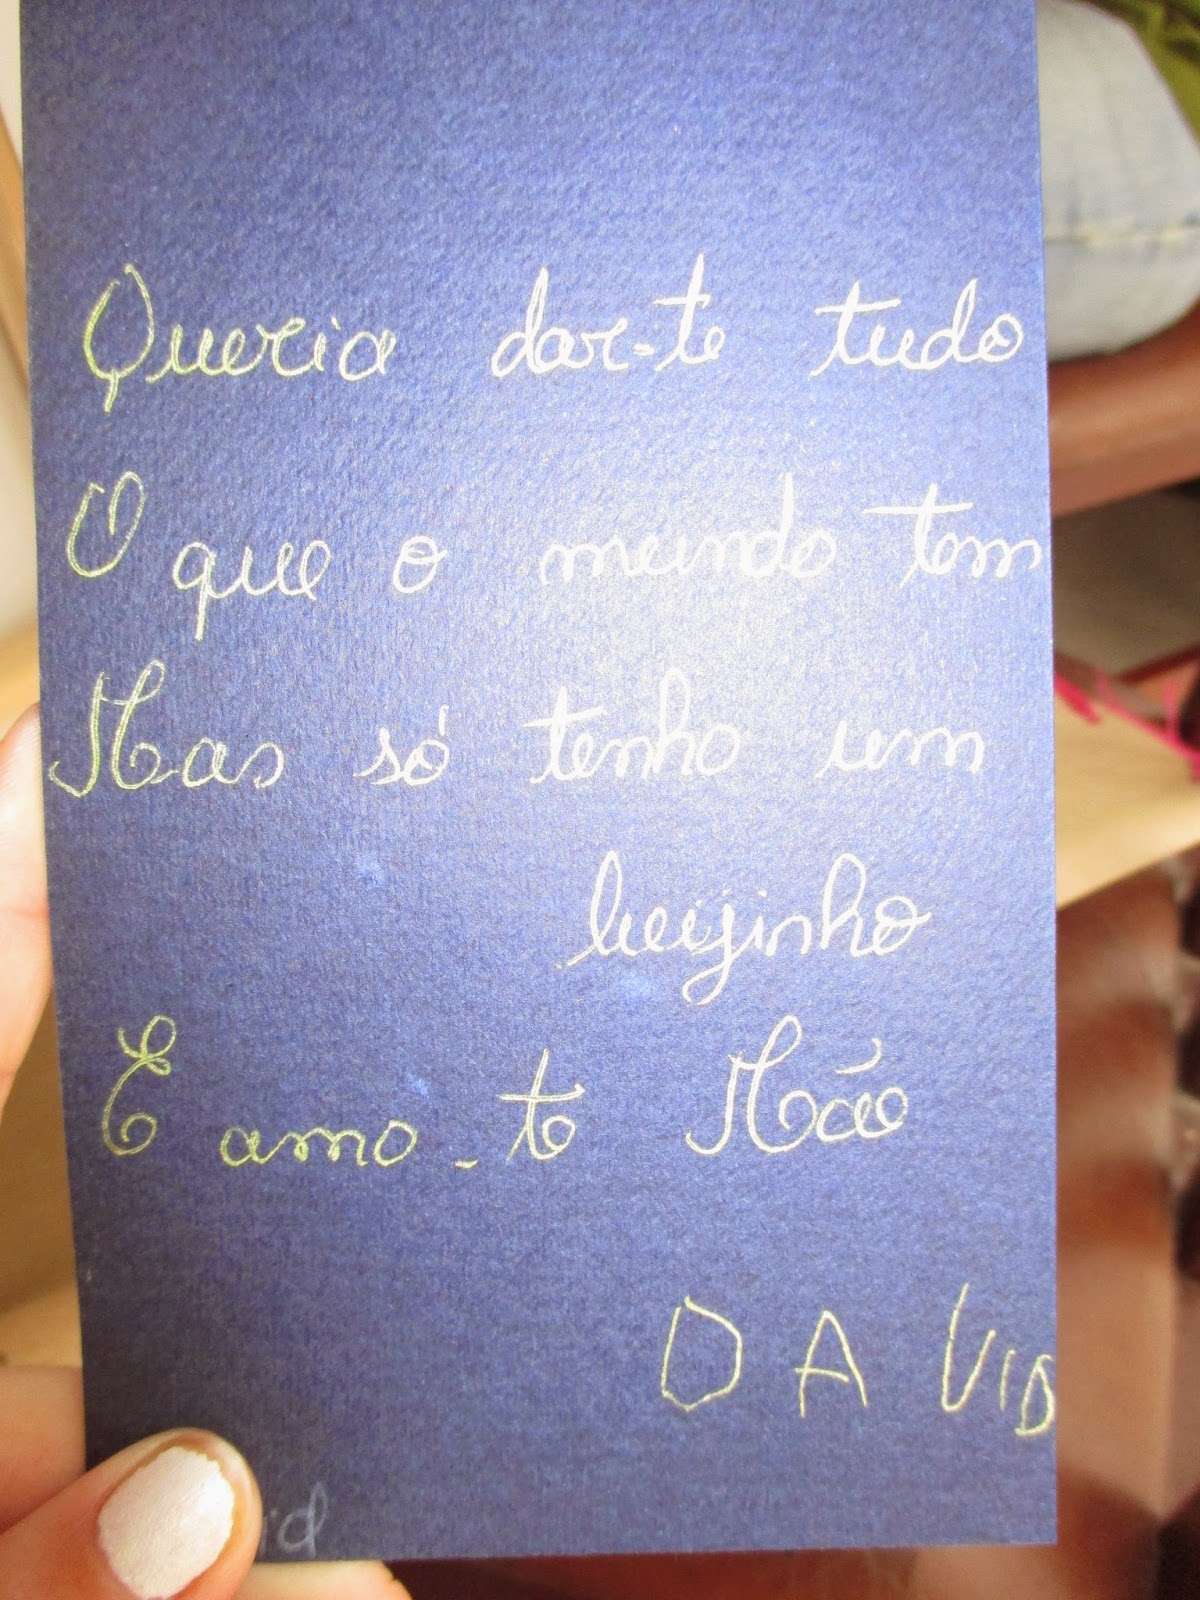 Queria dar-te tudo
O que o mundo tem
Mas só tenho um
beijinho
E amo-te Mão
DAVID
id